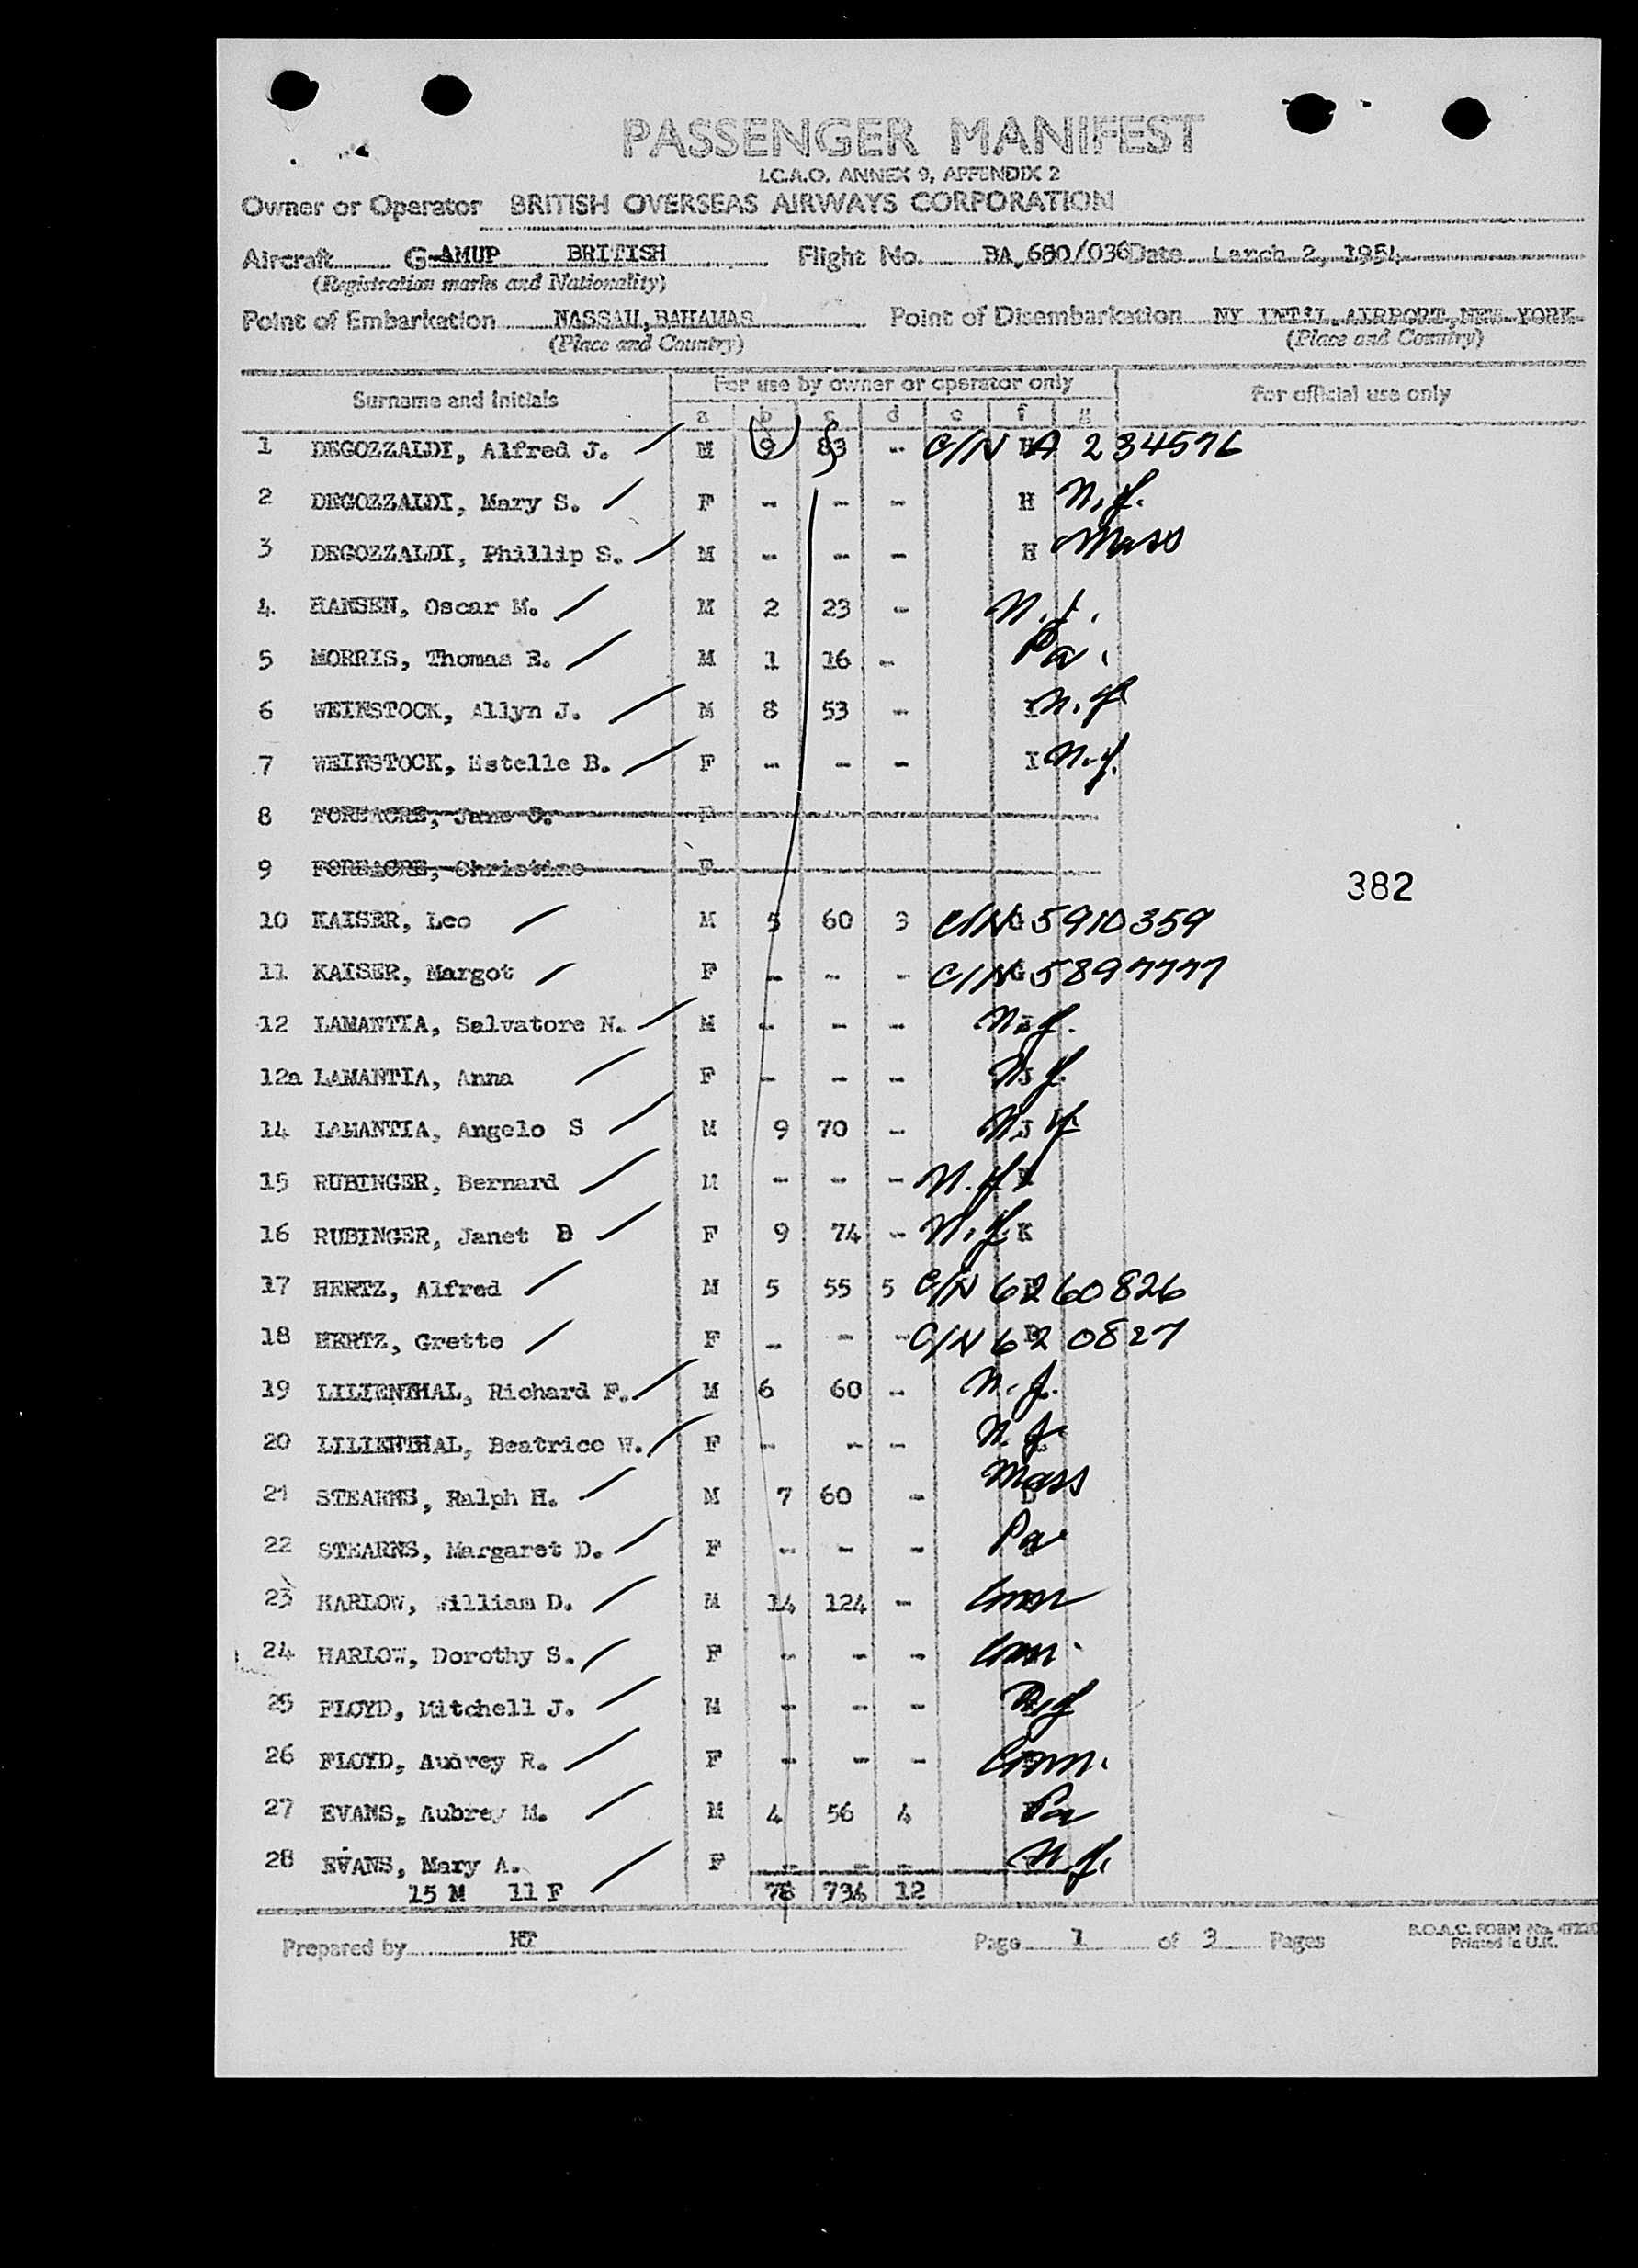 PASSENGER MANIFEST
I.C.A.O. ANNEX 9, APPENDIX 2
Owner or Operator BRITISH OVERSEAS AIRWAYS CORPORATION
Aircraft G-AMUP BRITISH Flight No. BA.680/036 Date March 2, 1954
(Registration marks and Nationality)
Point of Embarkation NASSAU, BAHAMAS Point of Disembarkation NY INT'L. AIRPORT, NEW YORK
(Place and Country) (Place and Country)
Surname and initials For use by owner or operator only For official use only
a b c d e f g
1 DEGOZZALDI, Alfred J. M 9 83 - C/N A 234576
2 DEGOZZALDI, Mary S. F - - - H N.J.
3 DEGOZZALDI, Phillip S. M - - - H Mass
4 HANSEN, Oscar M. M 2 23 - N.J.
5 MORRIS, Thomas E. M 1 16 - Pa.
6 WEINSTOCK, Allyn J. M 8 53 - I N.Y.
7 WEINSTOCK, Estelle B. F - - - I N.Y.
8 FOREACRE, Jane C. F
9 FOREACRE, Christine F
382
10 KAISER, Leo M 5 60 3 C/N G 5910359
11 KAISER, Margot F - - - C/N G 5897777
12 LAMANTIA, Salvatore N. M - - - J N.Y.
12a LAMANTIA, Anna F - - - J N.Y.
14 LAMANTIA, Angelo S M 9 70 - J N.Y.
15 RUBINGER, Bernard M - - - N.Y. K
16 RUBINGER, Janet B F 9 74 - N.Y. K
17 HERTZ, Alfred M 5 55 5 C/N 6260826
18 HERTZ, Grette F - - - C/N 62 0827
19 LILIENTHAL, Richard F. M 6 60 - N.Y.
20 LILIENTHAL, Beatrice W. F - - - N.Y.
21 STEARNS, Ralph H. M 7 60 - Mass
22 STEARNS, Margaret D. F - - - Pa
23 HARLOW, William D. M 14 124 - Conn
24 HARLOW, Dorothy S. F - - - Conn.
25 FLOYD, Mitchell J. M - - - N.Y.
26 FLOYD, Audrey R. F - - - Conn.
27 EVANS, Aubrey M. M 4 56 4 Pa
28 EVANS, Mary A. F - - - N.J.
15 M 11 F 78 734 12
Prepared by Page 1 of 3 Pages
B.O.A.C. FORM No.
Printed in U.K.